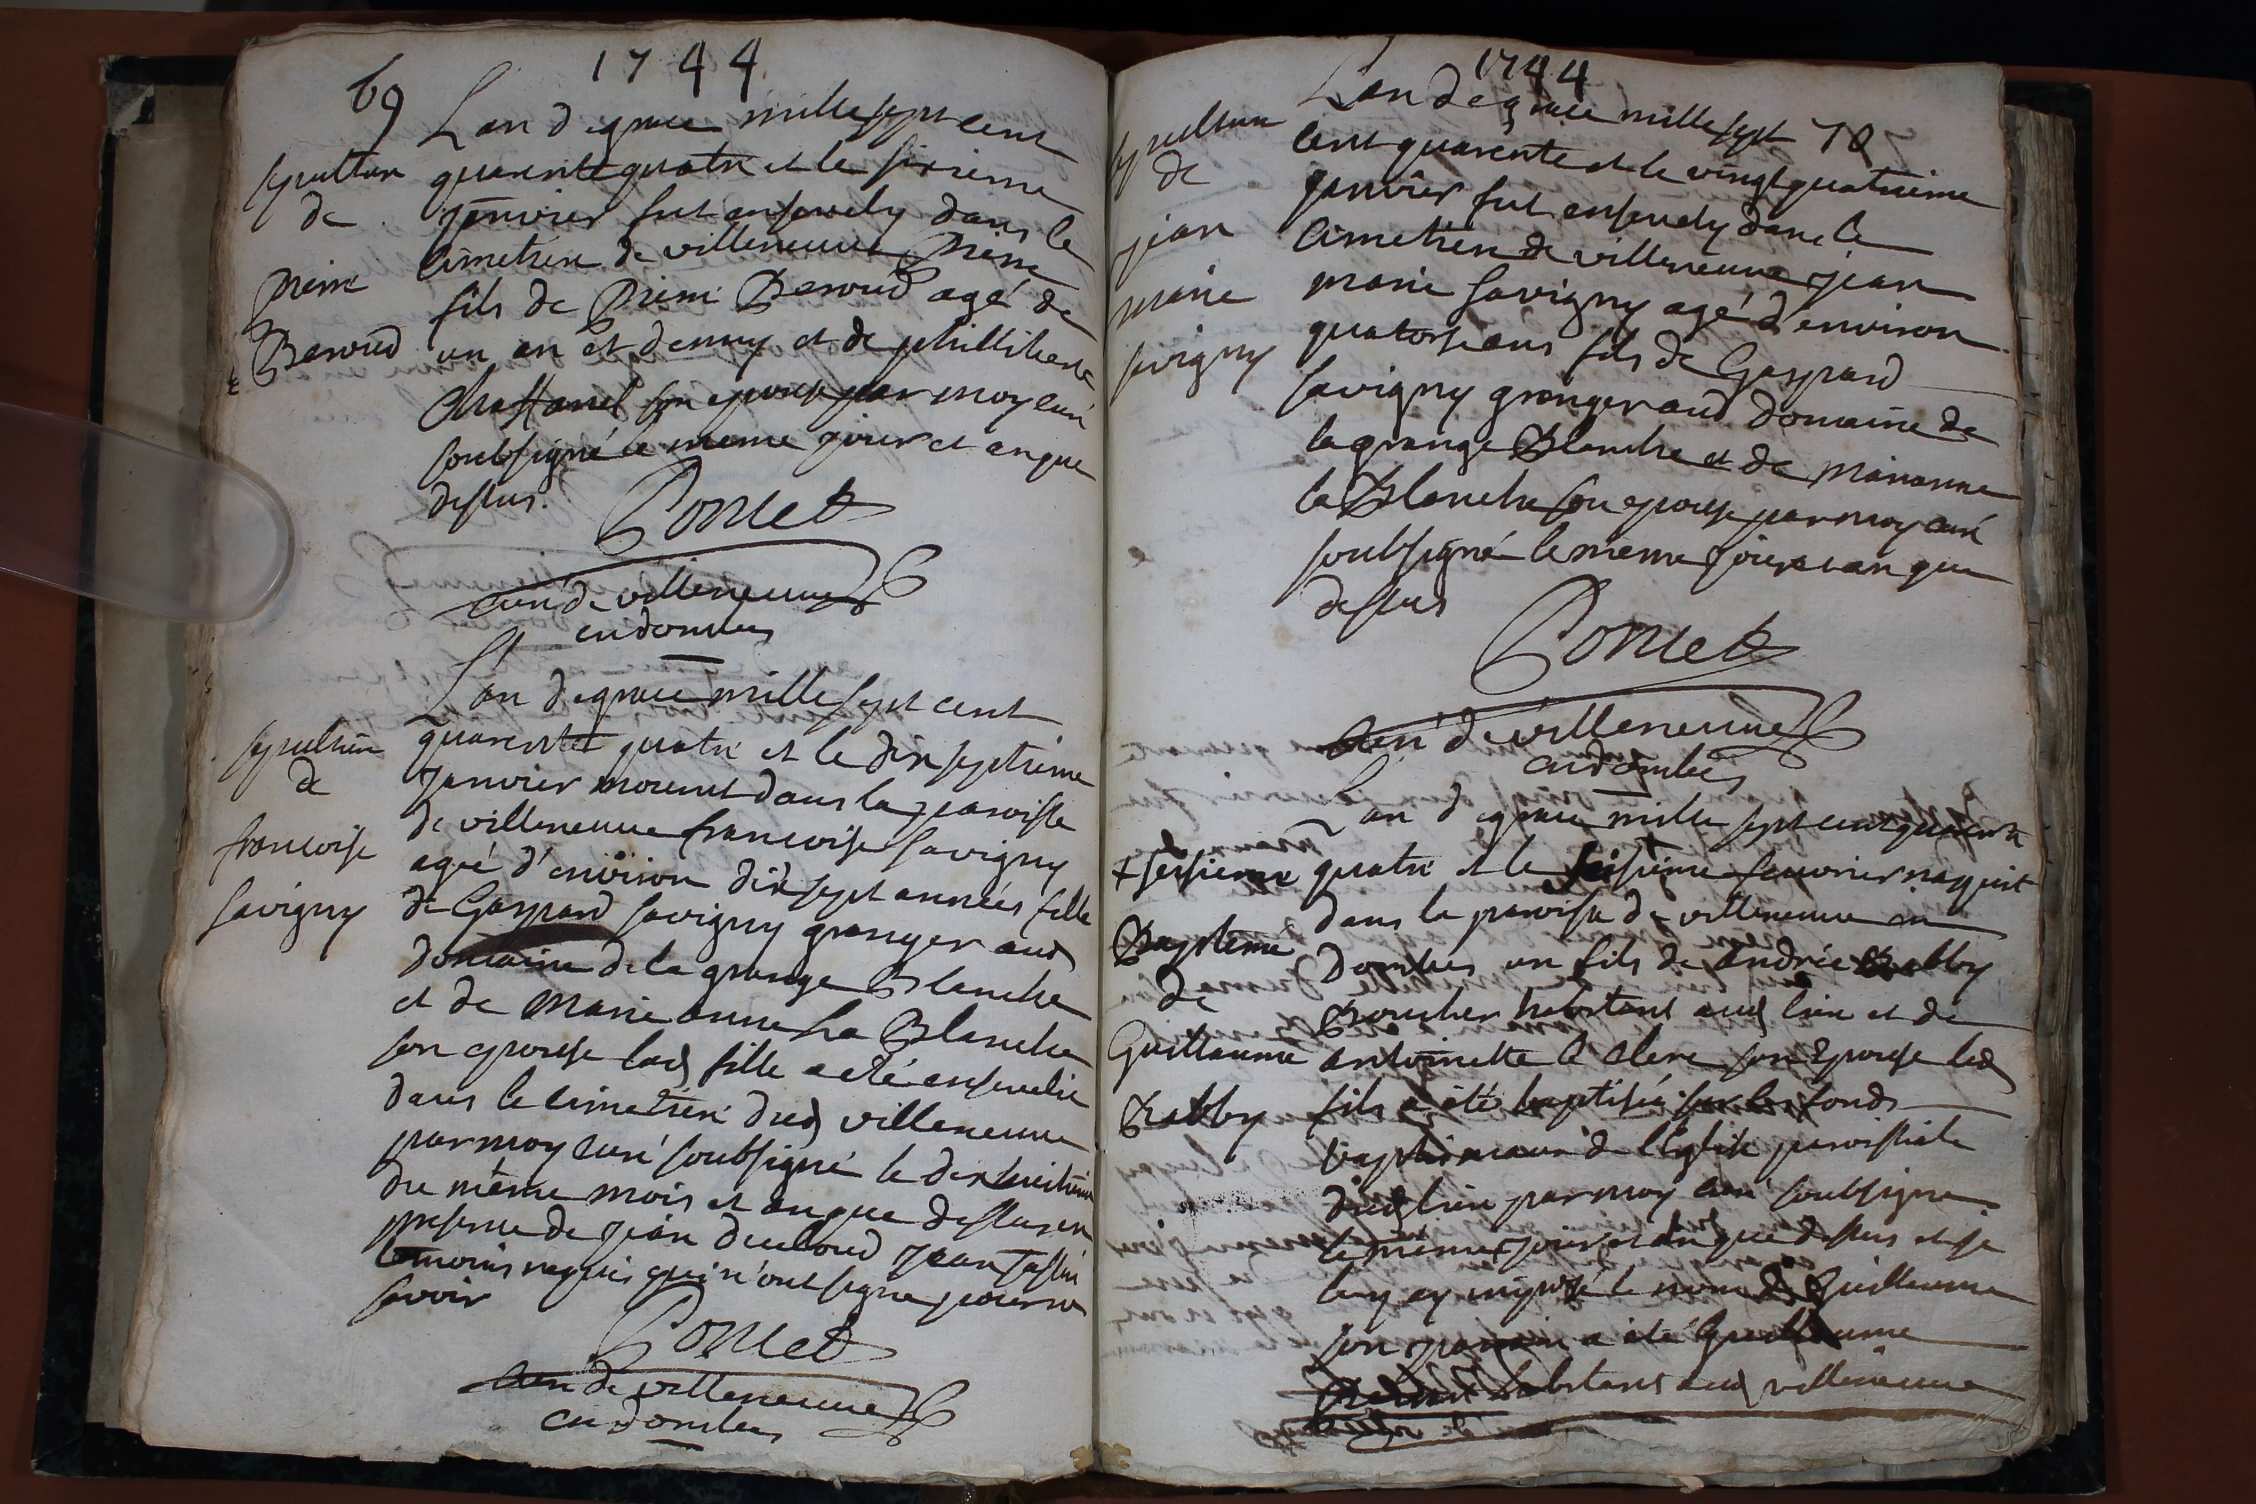 1744
69
L'an de grace mille sept cent
quarente quatre et le sixieme
janvier fut ensevely dans le
cimetiere de villeneuve Pierre
fils de Pierre Beroud agé de
un an et demy et de philliberte
son epouse par moy curé
soubsigné le meme jour et an que
dessus.
Poncet
curé de villeneuve
en dombes
sepulture
de
Pierre
Beroud
L'an de grace mille sept cent
quarente quatre et le dix septieme
janvier mourut dans la paroisse
de villeneuve francoise savigny
agé d'environ dix sept années fille
de Gaspard savigny granger aud
domaine de la grange Blanche
et de Marie anne La Blanche
son epouse lad fille a eté ensevelie
dans le cimetiere dud villeneuve
par moy curé soubsigné le dix huitieme
du même mois et an que dessus en
presence de jean ducloud jean
temoins requis qui n'ont signé pour ne
savoir
Poncet
curé de villeneuve
en dombes
sepulture
de
francoise
savigny
1744
70
L'an de grace mille sept
cent quarente et le vingt quatrieme
janvier fut ensevely dans le
cimetiere de villeneuve jean
marie savigny agé d'environ
quatorse ans fils de Gaspard
savigny granger aud domaine de
la grange Blanche et de Marianne
la Blanche son epouse par moy curé
soubsigné le meme jour et an que
dessus
Poncet
curé de villeneuve
en dombes
sepulture
de
jean
marie
savigny
L'an de grace mille sept cent quarente
quatre et le fevrier naquit
dans la paroisse de villeneuve en
Dombes un fils de andrée
Boucher habitant aud lieu et de
antoinette le clerc son Epouse led
fils a été baptisée sur les fonds
baptismaux de l'Eglise paroissiale
dud lieu par moy curé soubsigné
le même jour et an que dessus et je
luy ay imposé le nom de Guillaume
son parrain a été Guillaume
habitant aud villeneuve
+ sesieme
Baptême
de
Guillaume